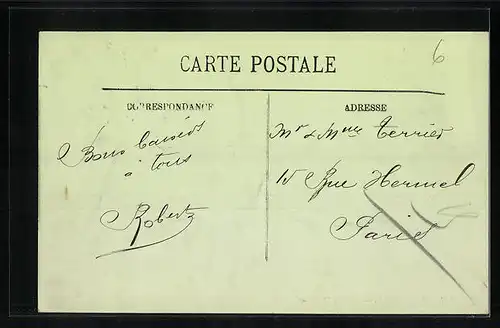 6
CARTE POSTALE
CORRESPONDANCE
ADRESSE
Bons baisers
à tous
Robert
Mr & Mme Terrier
15 Rue Hermel
Paris